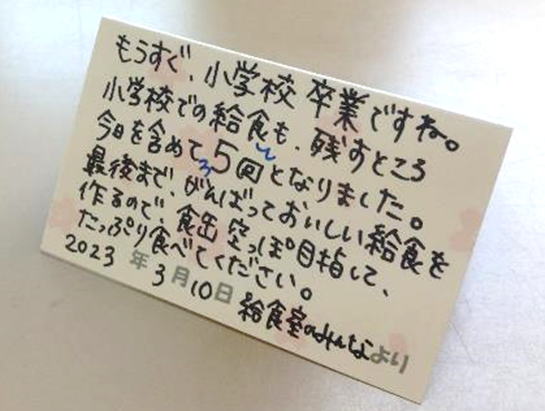 もうすぐ、小学校 卒業ですね。
小学校での給食も、残すところ
今日を含めて5回となりました。
最後まで、がんばっておいしい給食を
作るので、食缶 空っぽ目指して、
たっぷり食べてください。
2023年3月10日
給食室のみんなより